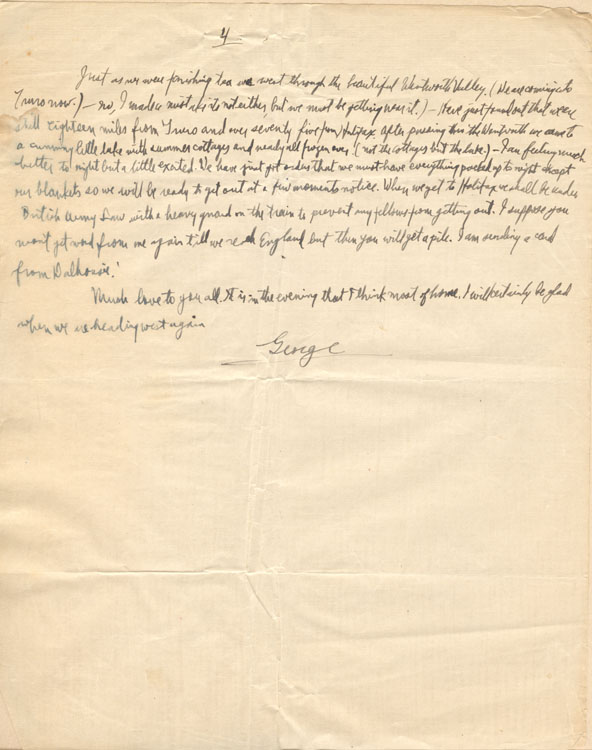 4
Just as we were finishing tea we went through the beautiful Wentworth Valley. (We are coming to
Truro now.) – no, I made a mistake its not either, but we must be getting near it.) – Have just found out that we are
still eighteen miles from Truro and over seventy five from Halifax. After passing thru the Wentworth we came to
a cunning little lake with summer cottages and nearly all frozen over. (not the cottages but the lake.) – I am feeling much
better to night but a little excited. We have just got orders that we must have everything packed up to night except
our blankets so we will be ready to get out at a few moments notice. When we get to Halifax we shall be under
British Army Law with a heavy guard on the train to prevent any fellows from getting out. I suppose you
won't get word from me again till we reach England but then you will get a pile. I am sending a card
from Dalhousie.
Much love to you all. It is in the evening that I think most of home. I will certainly be glad
when we is heading west again
George